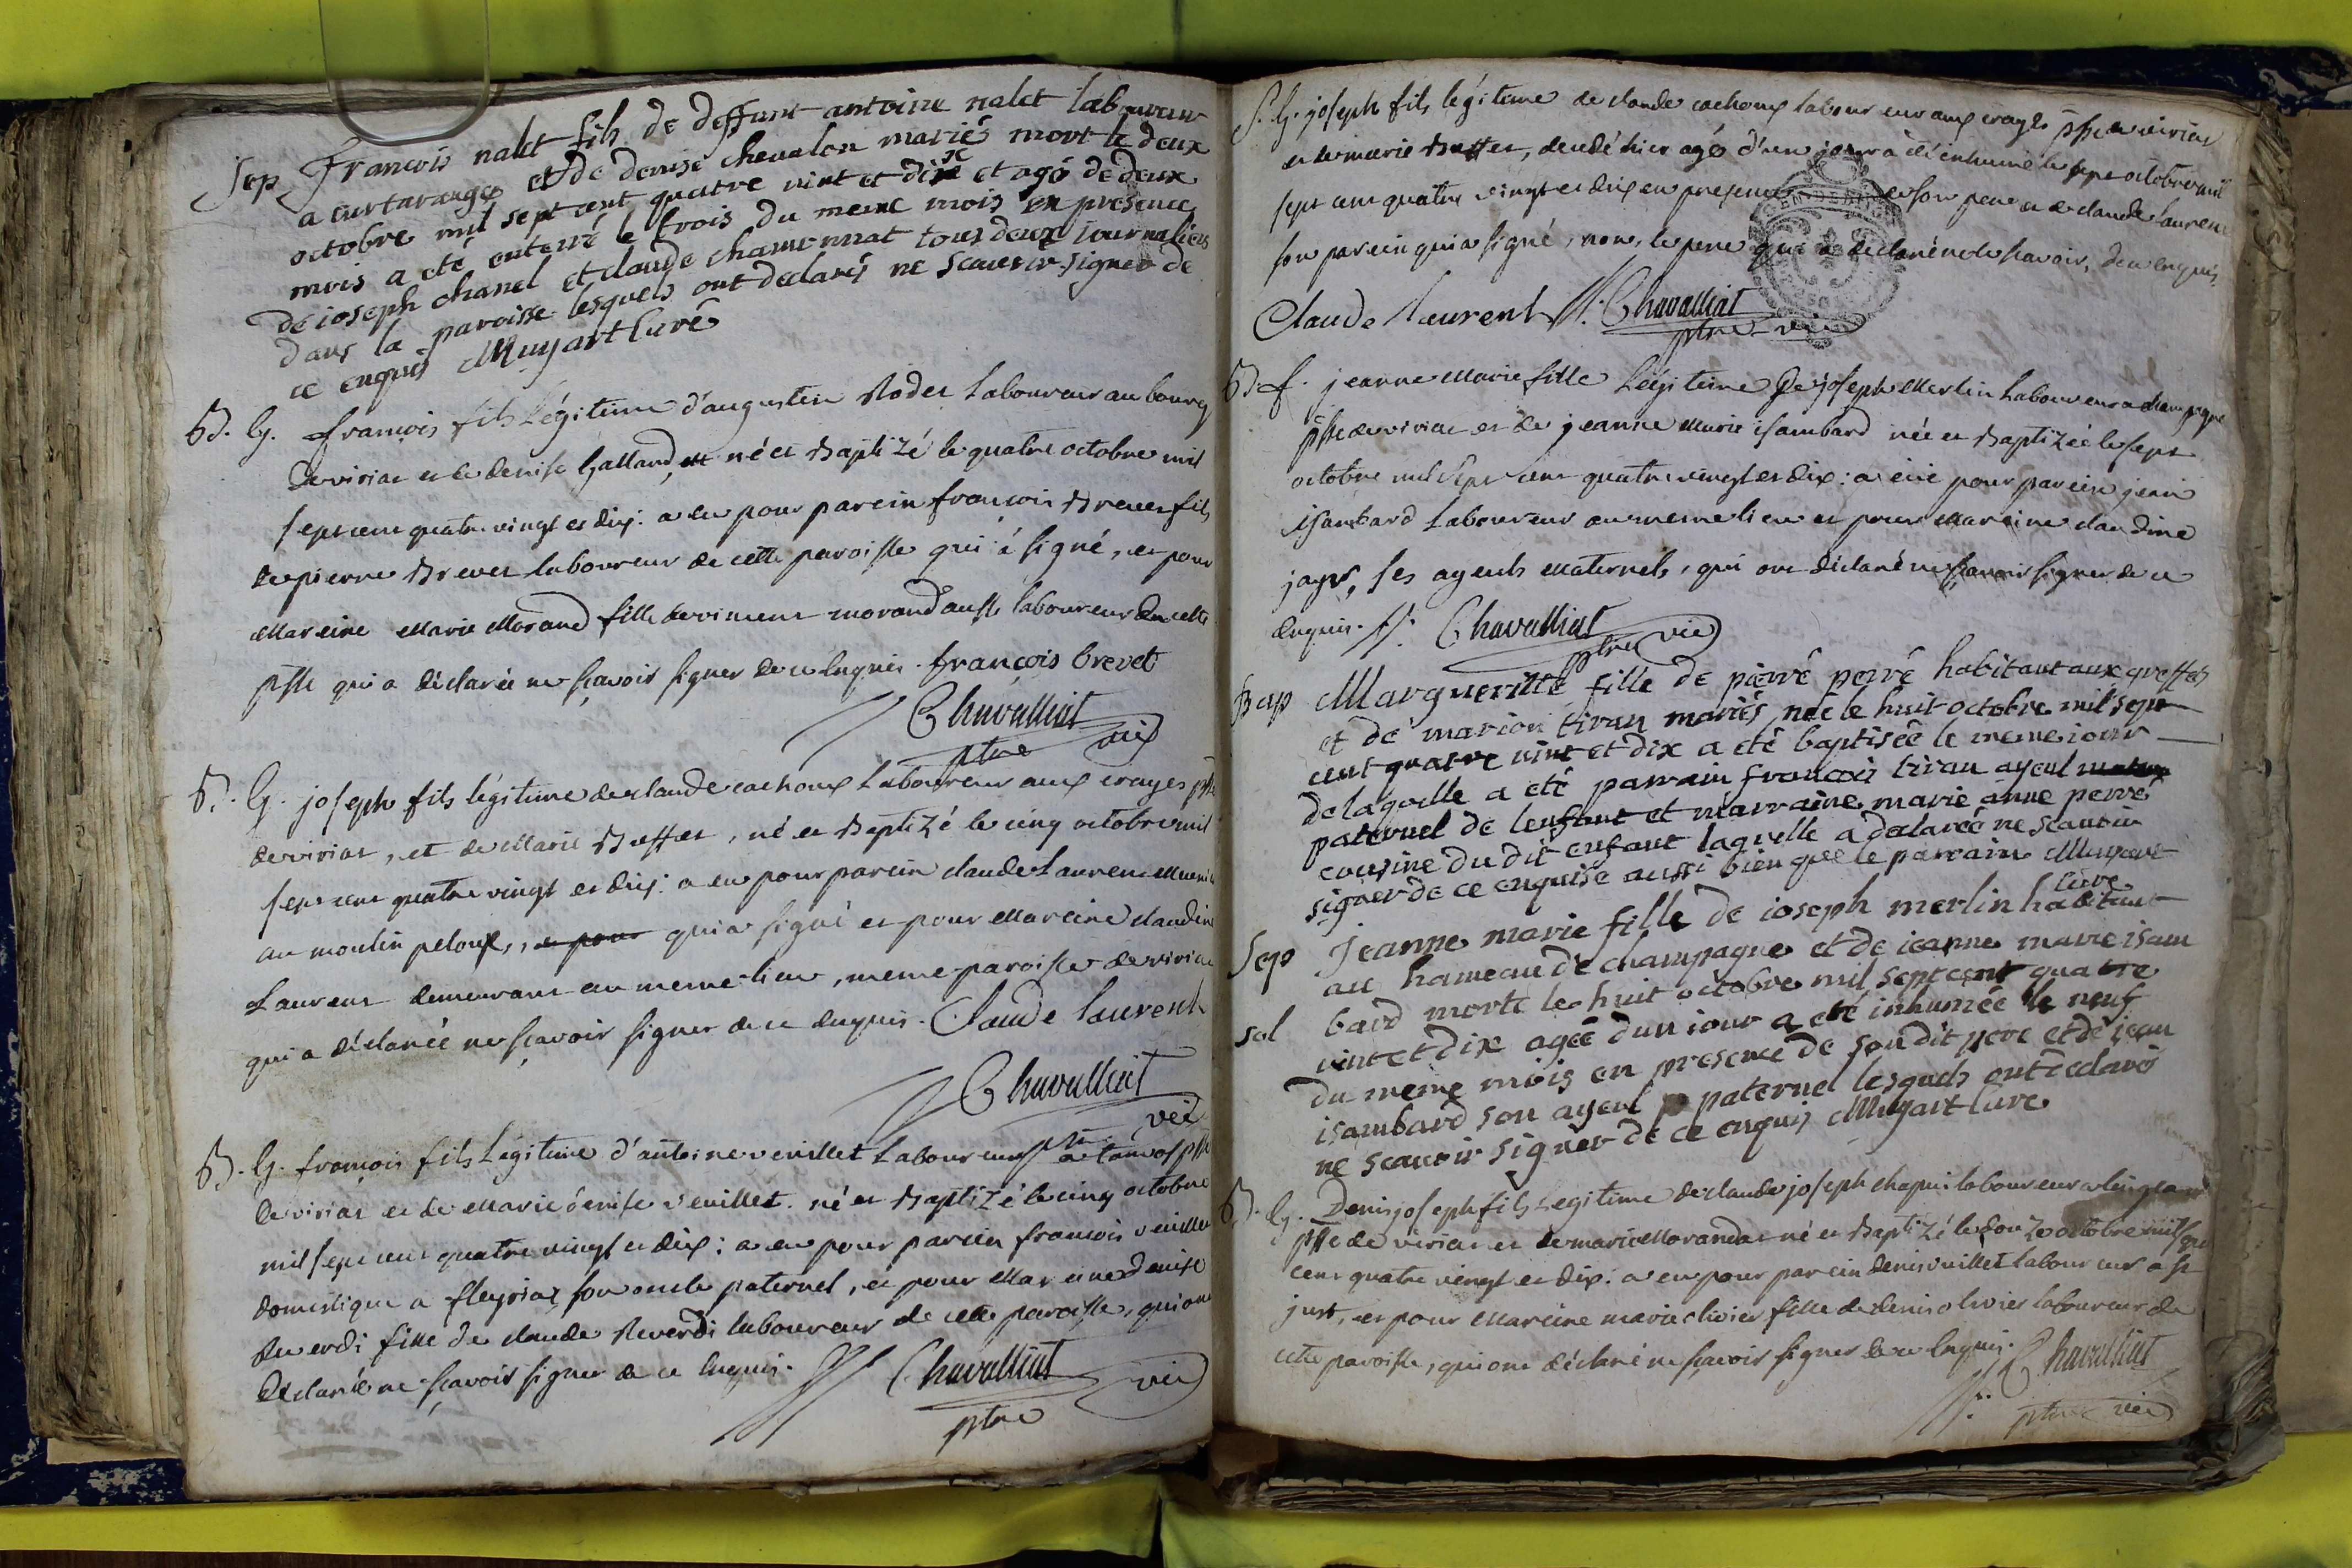 Sep François nalet fils de deffunt antoine nalet laboureur
a curtarangé et de denise chevalon mariés mort le deux
octobre mil sept cent quatre vint et dix et agé de deux
mois a eté enterré le trois du meme mois en presence
de ioseph chanel et claude chamonnat tous deux iournaliers
dans la paroisse lesquels ont declarés ne scauoir signer de
ce enquis Muyart Curé
B. G. françois fils Légitime d'augustin Rodet Laboureur au bourg
de viriat et de denise Galland, né et Baptizé le quatre octobre mil
sept cent quatre vingt et dix : a eu pour parein françois Brevet fils
de pierre Brevet laboureur de cette paroisse qui a signé, et pour
Mareine Marie Morand fille de viment morand aussi laboureur de cette
psse qui a déclarée ne sçavoir signer de ce Enquis. françois brevet
Chavalliat
ptre vic
B. G. joseph fils légitime de claude cachoux Laboureur aux crayes psse
de viriat, et de Marie Buffet, né et Baptizé le cinq octobre mil
sept cent quatre vingt et dix : a eu pour parein claude Laurent Meunier
au moulin peloux, et pour qui a signé et pour Mareine claudine
Laurent demeurant au meme lieu, meme paroisse de viriat
qui a déclarée ne sçavoir signer de ce Enquis. Claude laurent
Chavalliat
ptre vic
B. G. françois fils Légitime d'antoine veuillet Laboureur a tanvol psse
de viriat et de Marie denise veuillet. né et Baptizé le cinq octobre
mil sept cent quatre vingt et dix : a eu pour parein françois veuillet
domestique a fleyriat son oncle paternel, et pour Mareine denise
Reverdi fille de claude Reverdi laboureur de cette paroisse, qui ont
déclaré ne sçavoir signer de ce Enquis.
Chavalliat
ptre vic
S. G. joseph fils légitime de claude cachoux laboureur aux crayes psse de viriat
et de marie Buffet, décédé hier agé d'un jour a été inhumé le sept octobre mil
sept cent quatre vingt et dix en presence de son pere et de claude Laurent
son parein qui a signé, non le pere qui a déclaré ne le sçavoir, de ce enquis.
Claude laurent Chavalliat
ptre vic
B. f. jeanne Marie fille Légitime de joseph Merlin Laboureur a champagne
psse de viriat et de jeanne Marie isambard née et Baptizée le sept
octobre mil sept cent quatre vingt et dix : a eue pour parein jean
isambard Laboureur au meme lieu et pour Mareine claudine
jayr, ses ayeuls Maternels, qui ont déclaré ne sçavoir signer de ce
Enquis. Chavalliat
ptre vic
Bap Margueritte fille de pierre perré habitant aux greffes
et de marion tivan mariés née le huit octobre mil sept
cent quatre vint et dix a eté baptisée le meme iour
de laquelle a eté parrain francois tivan ayeul
paternel de lenfant et marraine marie anne perré
cousine du dit enfant laquelle a declarée ne scauoir
signer de ce enquise aussi bien que le parrain Muyart
Curé
Sep Jeanne marie fille de ioseph merlin habitant
au hameau de champagne et de ieanne marie isam
sol bard morte le huit octobre mil sept cent quatre
vint et dix agée dun iour a eté inhumée le neuf
du meme mois en presence de son dit pere et de jean
isambard son ayeul paternel lesquels ont declaré
ne scauoir signer de ce enquis Muyart Curé
B. G. Denis joseph fils Légitime de claude joseph chapui laboureur a
psse de viriat et de marie Morandat né et Baptizé le douze octobre mil sept
cent quatre vingt et dix : a eu pour parein denis vuillet laboureur a st
just, et pour Mareine marie olivier fille de denis olivier laboureur de
cette paroisse, qui ont déclaré ne sçavoir signer de ce Enquis.
Chavalliat
ptre vic